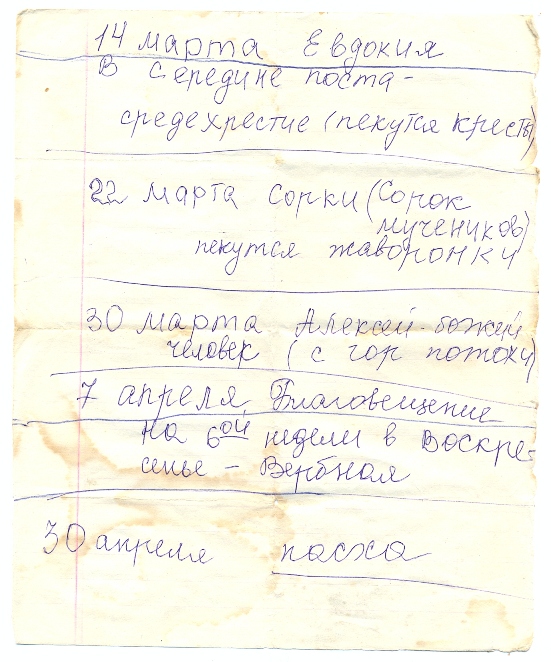 14 марта Евдокия
В середине поста -
средехрестие (пекутся кресты)
22 марта Сорки (Сорок
мучеников)
пекутся жаворонки
30 марта Алексей-божей
человек (с гор потоки)
7 апреля Благовещение
на 6ой недели в Воскре-
сенье - Вербная
30 апреля пасха